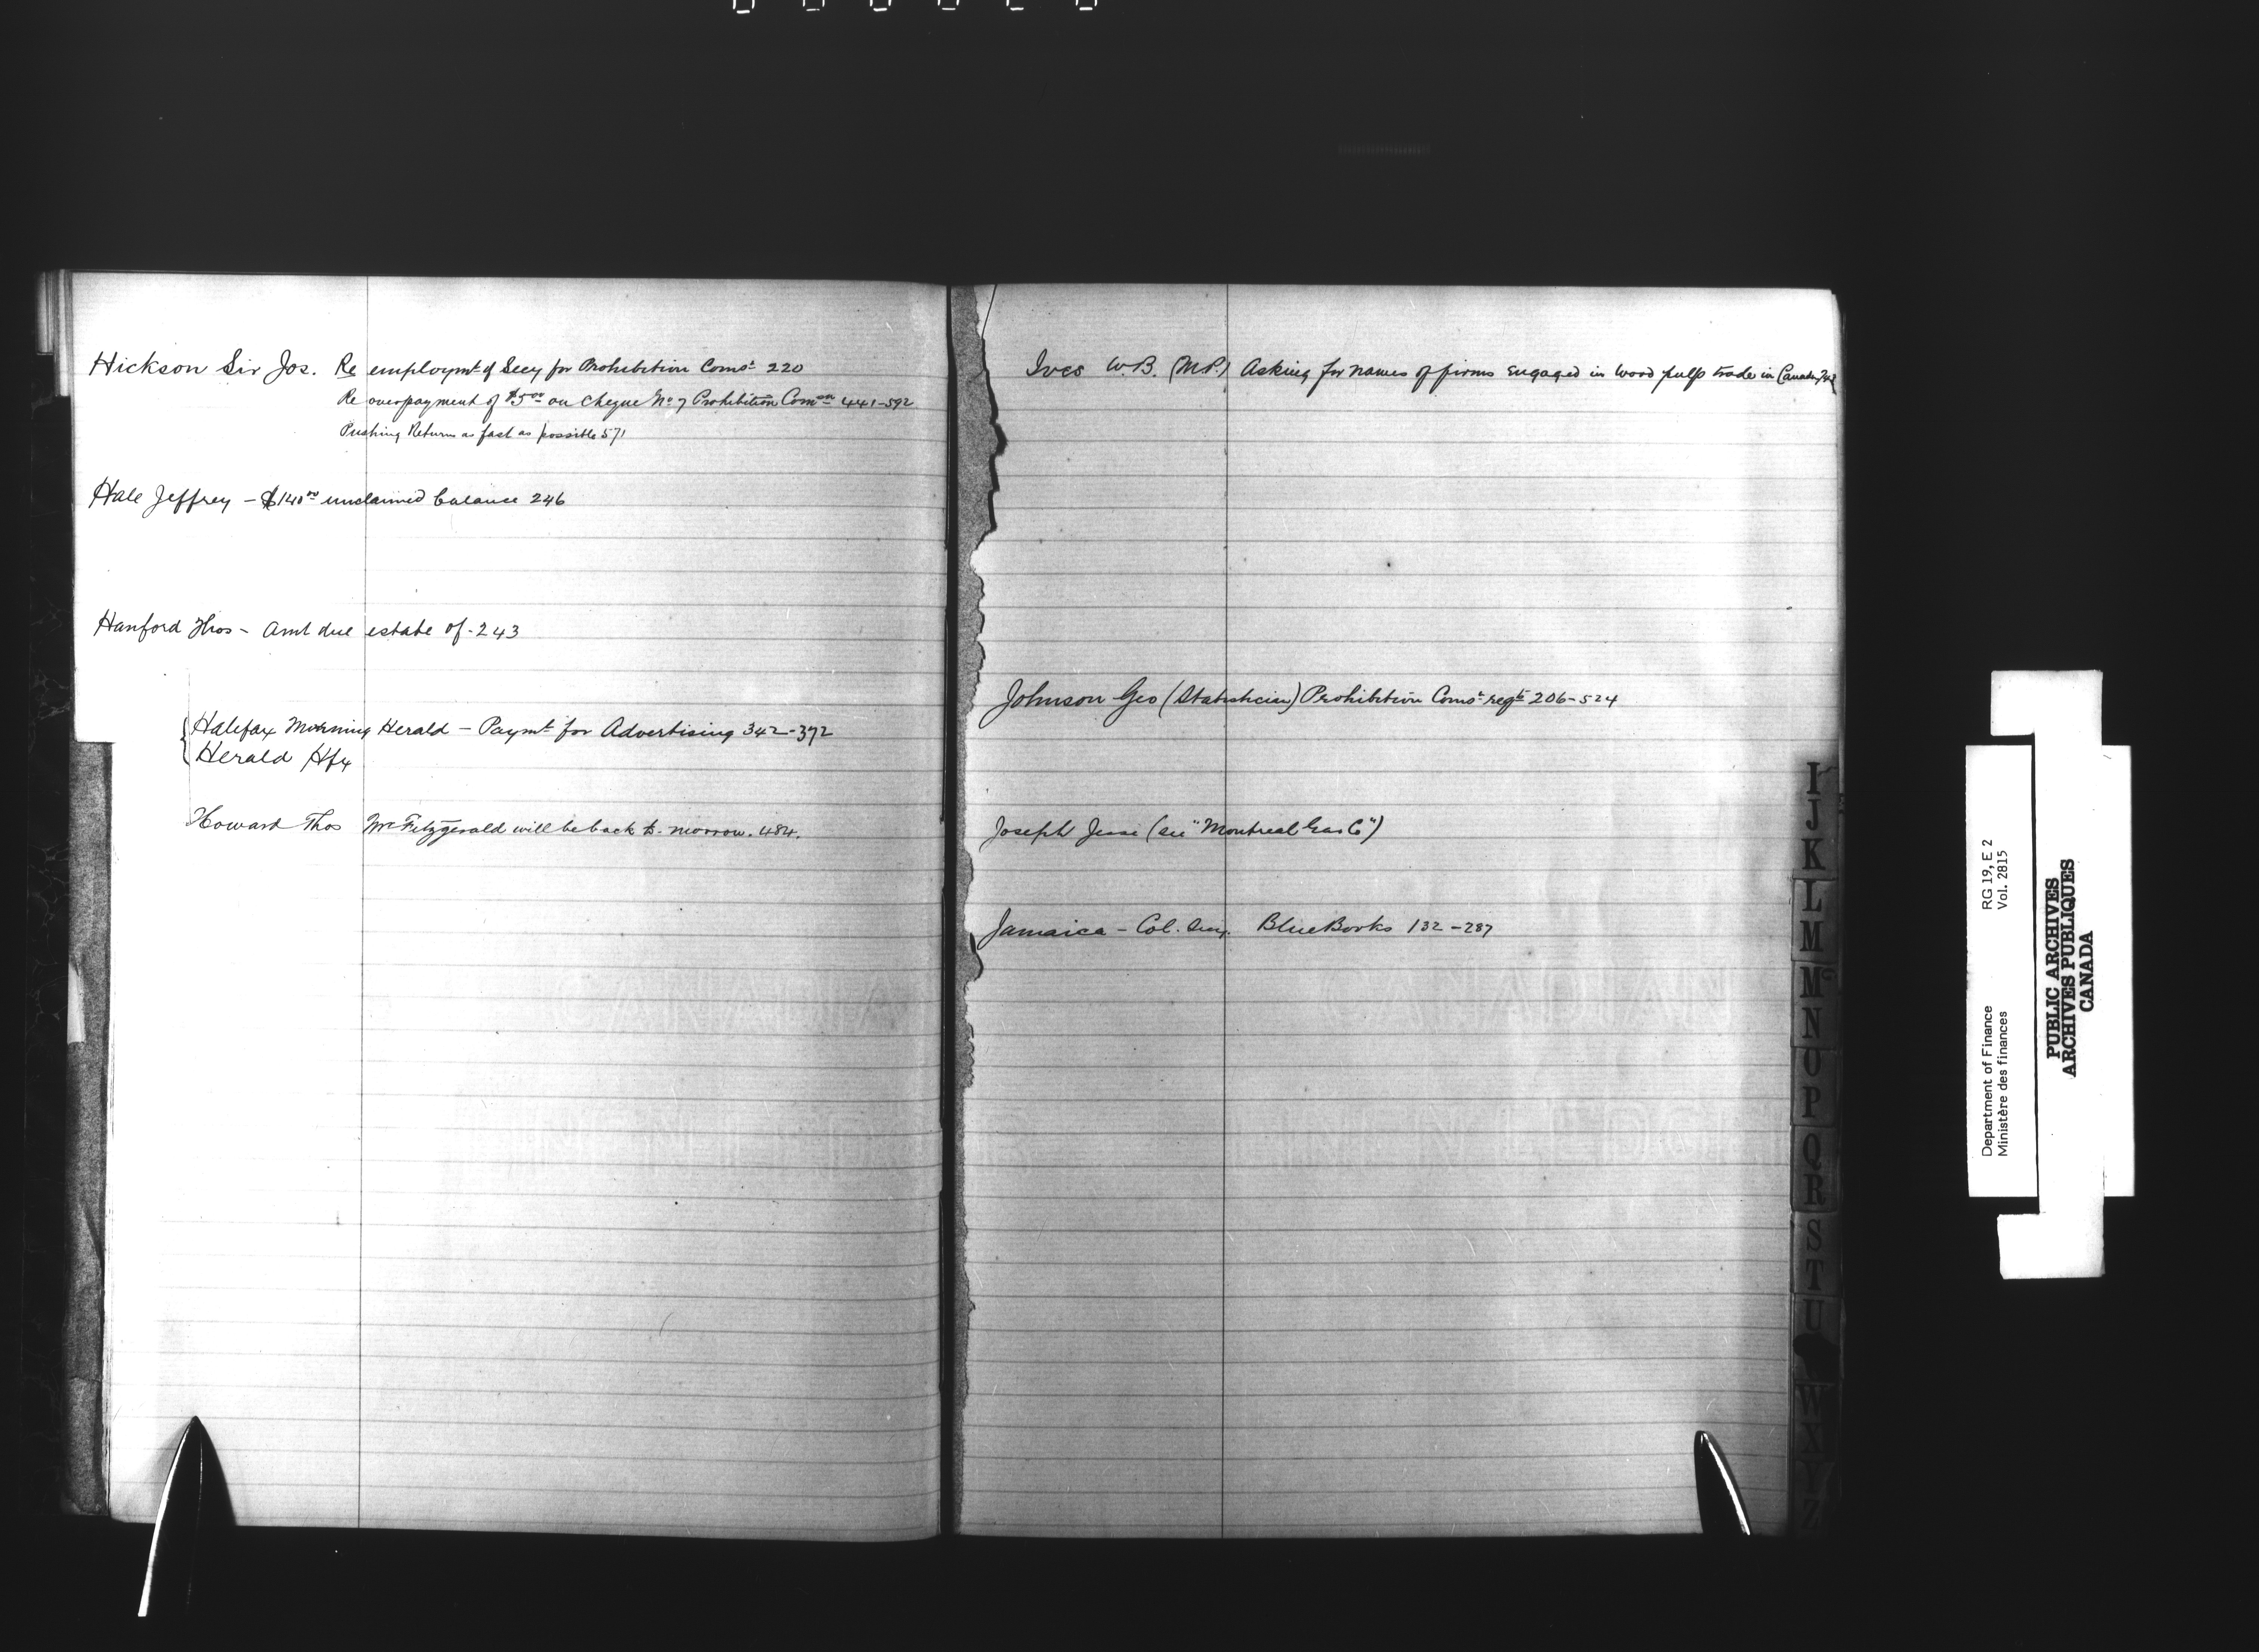 Hickson Sir Jos. Re employmt of Secy for Prohibition Comsn 220
Re overpayment of $5.00 on Cheque No 7 Prohibition Comon 441-592
Pushing Returns as fast as possible 571
Hale Jeffrey - $140.00 unclaimed balance 246
Hanford Thos - Amt due estate of - 243
Halifax Morning Herald - Paymt for Advertising 342-372
Herald Hfx
Howard Thos Mr Fitzgerald will be back to-morrow. 484.
Ives W.B. (M.P.) Asking for names of firms engaged in wood pulp trade in Canada
Johnson Geo (Statistician) Prohibition Comsn reqts 206-524
Joseph Jesse (see "Montreal Gas Co")
Jamaica - Col. Secy. Blue Books 132-287
CANADIAN
LINEN LEDGER
I
J
K
L
M
Mc
N
O
P
Q
R
S
T
U
W
X
Y
Z
Department of Finance RG 19, E 2
Ministère des finances Vol. 2815
PUBLIC ARCHIVES
ARCHIVES PUBLIQUES
CANADA